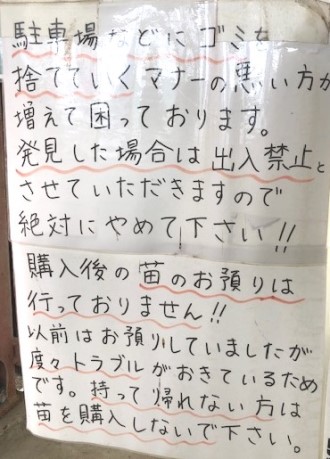 駐車場などにゴミを
捨てていくマナーの悪い方が
増えて困っております。
発見した場合は出入禁止と
させていただきますので
絶対にやめて下さい!!
購入後の苗のお預りは
行っておりません!!
以前はお預りしていましたが
度々トラブルがおきているため
です。持って帰れない方は
苗を購入しないで下さい。